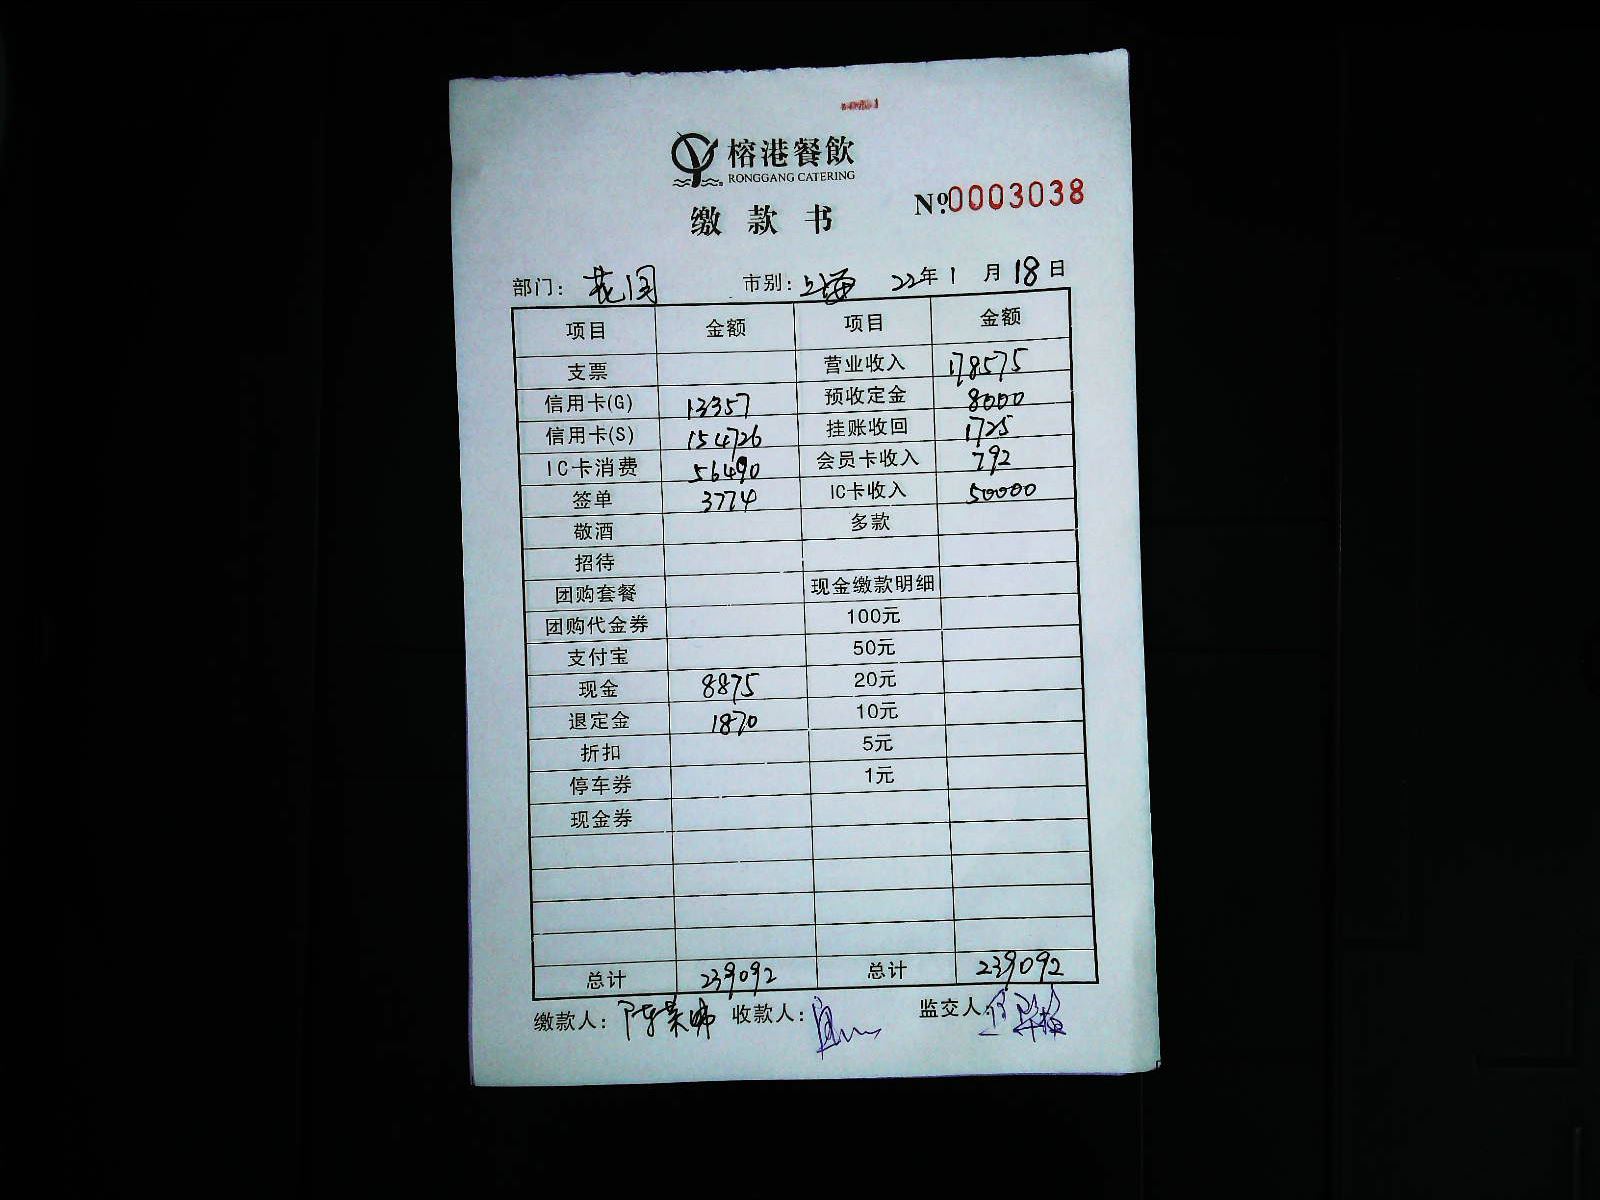 榕港餐飲
RONGGANG CATERING
缴款书
Nº.0003038
部门：花园 市别：上海 22年1月18日
项目 金额 项目 金额
支票 营业收入 178575
信用卡(G) 13357 预收定金 8000
信用卡(S) 154726 挂账收回 1725
IC卡消费 56490 会员卡收入 792
签单 3774 IC卡收入 50000
敬酒 多款
招待
团购套餐 现金缴款明细
团购代金券 100元
支付宝 50元
现金 8875 20元
退定金 1870 10元
折扣 5元
停车券 1元
现金券
总计 239092 总计 239092
缴款人： 收款人： 监交人